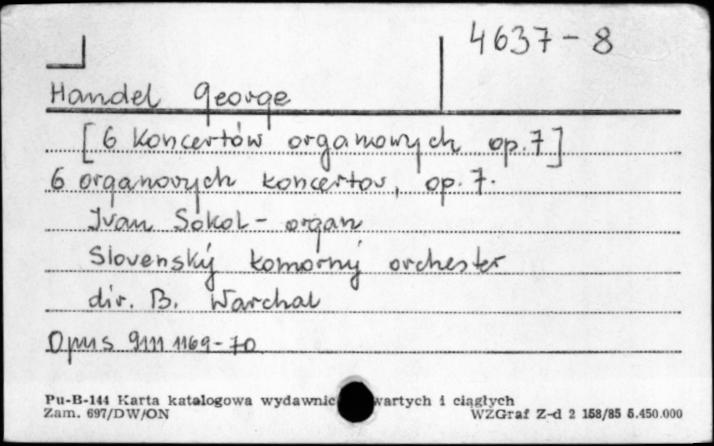 4637-8
Handel George
[6 Koncertów organowych op. 7]
6 organových koncertov, op. 7.
Ivan Sokol - organ
Slovenský komorný orchester
dir. B. Warchal
Opus 9111 1169-70
Pu-B-144 Karta katalogowa wydawnic wartych i ciągłych
Zam. 697/DW/ON WZGraf Z-d 2 158/85 5.450.000